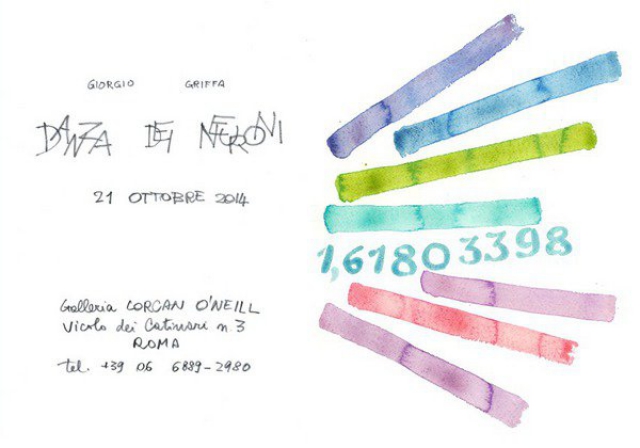 GIORGIO GRIFFA
DANZA DEI NEURONI
21 OTTOBRE 2014
Galleria LORCAN O'NEILL
Vicolo dei Catinari n. 3
ROMA
tel. +39 06 6889-2980
1,61803398